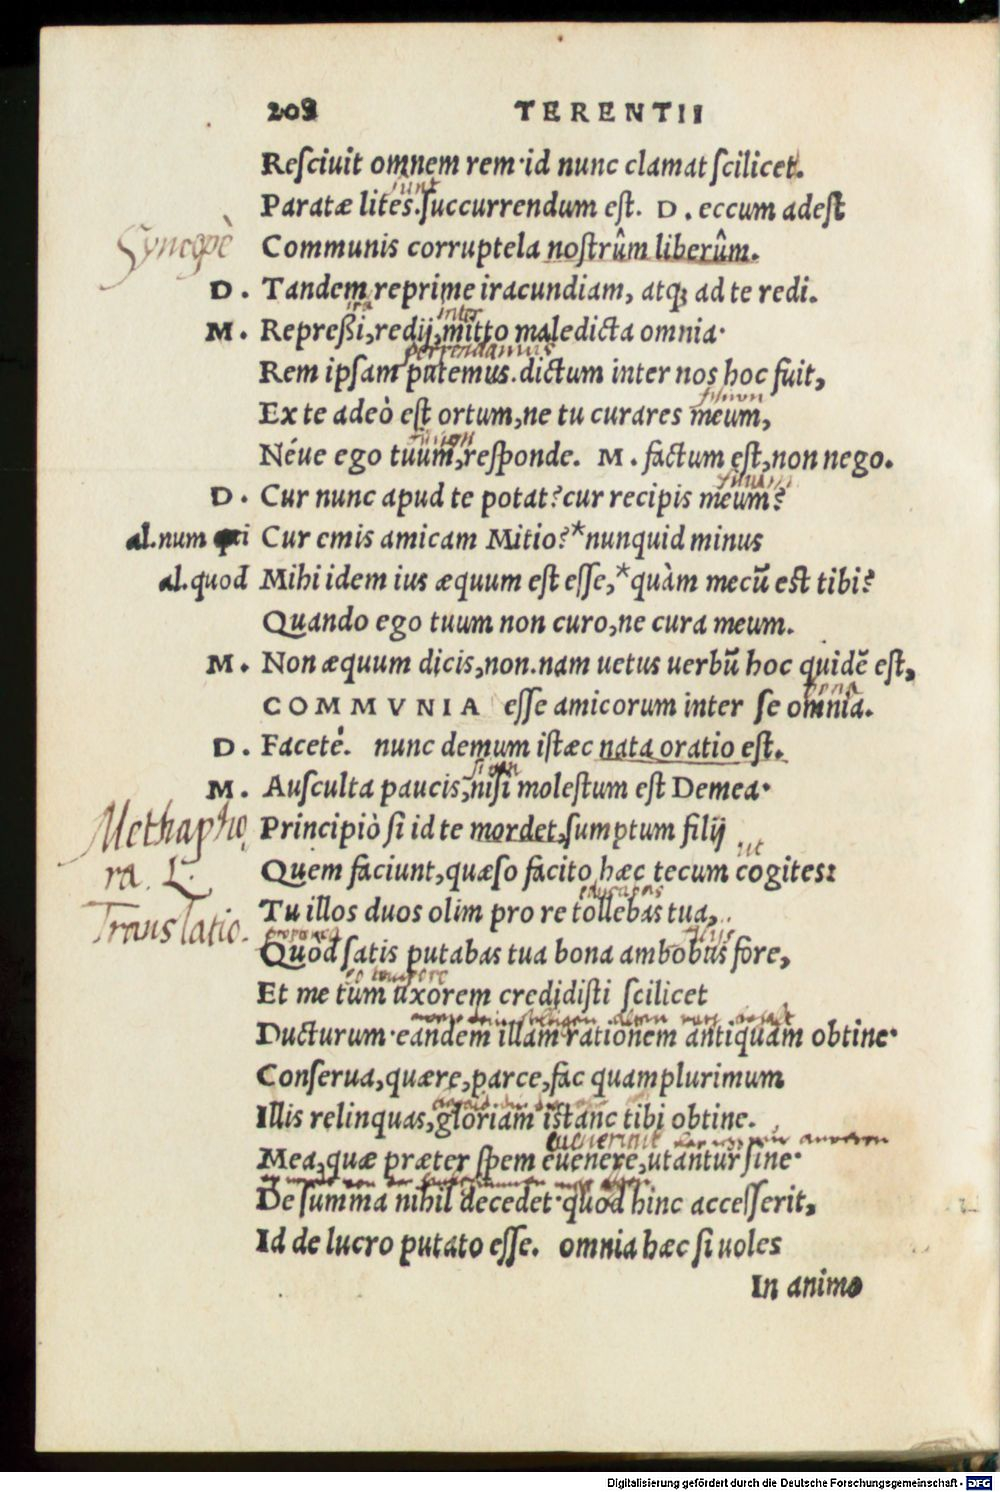 208 TERENTII
Resciuit omnem rem·id nunc clamat scilicet.
sunt
Paratæ lites.succurrendum est. D. eccum adest
Syncopè
Communis corruptela nostrûm liberûm.
D. Tandem reprime iracundiam, atq; ad te redi.
ira inter
M. Repreßi,redij,mitto maledicta omnia·
perpendamus
Rem ipsam putemus.dictum inter nos hoc fuit,
filium
Ex te adeò est ortum,ne tu curares meum,
filium
Néue ego tuum,responde. M. factum est,non nego.
filium
D. Cur nunc apud te potat?cur recipis meum?
al.num qui Cur emis amicam Mitio?*nunquid minus
al.quod Mihi idem ius æquum est esse,*quàm mecū est tibi?
Quando ego tuum non curo,ne cura meum.
M. Non æquum dicis,non.nam uetus uerbū hoc quidē est,
bona
COMMVNIA esse amicorum inter se omnia.
D. Faceté. nunc demum istæc nata oratio est.
si non
M. Ausculta paucis,nisi molestum est Demea·
Methapho
Principiò si id te mordet,sumptum filij
ra. L. ut
Quem faciunt,quæso facito hæc tecum cogites:
educabas
Tu illos duos olim pro re tollebas tua,
Translatio.
propterea filijs
Quòd satis putabas tua bona ambobus fore,
eo tempore
Et me tum uxorem credidisti scilicet
Ducturum·eandem illam rationem antiquam obtine·
Conserua,quære,parce,fac quamplurimum
Illis relinquas,gloriam istanc tibi obtine.
euenerint
Mea,quæ præter spem euenere,utantur sine·
De summa nihil decedet·quod hinc accesserit,
Id de lucro putato esse. omnia hæc si uoles
In animo
Digitalisierung gefördert durch die Deutsche Forschungsgemeinschaft - DFG